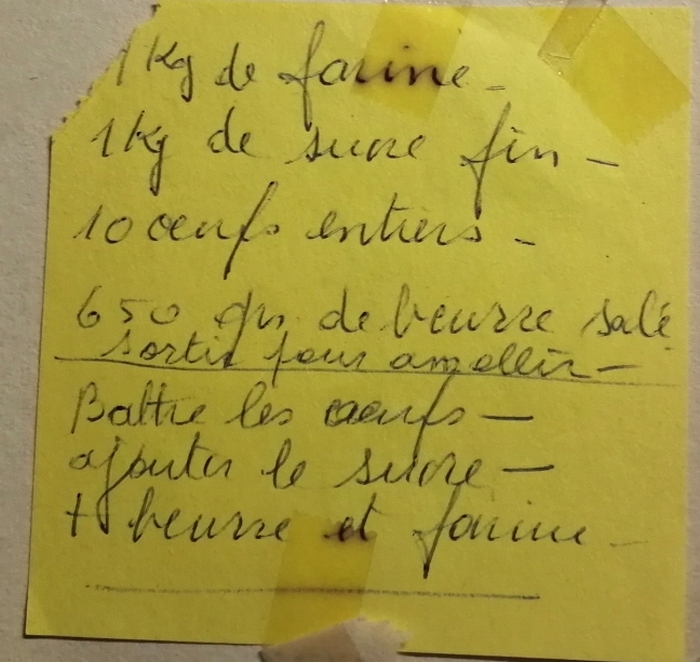 1 Kg de farine -
1 Kg de sucre fin -
10 œufs entiers -
650 grs de beurre salé
sortir pour amollir -
Battre les œufs -
ajouter le sucre -
+ beurre et farine -